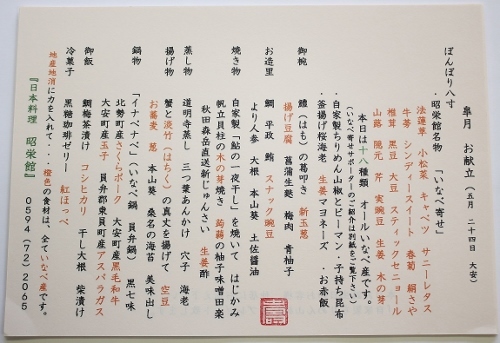 皐月　お献立（五月　二十四日、大安）
ぼんぼり八寸
・昭栄館名物　「いなべ寄せ」
法蓮草　小松菜　キャベツ　サニーレタス
牛蒡　シンディースイート　春菊　絹さや
椎茸　黒豆　大豆　スティックセニョール
山蕗　隠元　芹　実豌豆　生姜　木の芽
本日は十八種類　オールいなべ産です。
（いなべ寄せサポーターのご紹介は別紙をご覧下さい）
・自家製ちりめん山椒とピーマン・子持ち昆布
・釜揚げ桜海老　生姜マヨネーズ　・お赤飯
御椀
鱧（はも）の葛叩き　新玉葱
揚げ豆腐　菖蒲生麩　梅肉　青柚子
お造里
鯛　平政　鮪　スナック豌豆
より人参　大根　本山葵　土佐醤油
焼き物
自家製「鮎の一夜干し」を焼いて　はじかみ
帆立貝柱の木の芽焼き　蒟蒻の柚子味噌田楽
秋田森岳直送新じゅんさい　生姜酢
蒸し物
道明寺蒸し　三つ葉あんかけ　穴子　海老
揚げ物
蟹と淡竹（はちく）の真丈を揚げて　空豆
お蕎麦　葱　本山葵　桑名の海苔　美味出し
鍋物
「イナベナベ」（いなべ鍋　員弁鍋）　黒七味
北勢町産さくらポーク　大安町産黒毛和牛
大安町産玉子　員弁郡東員町産アスパラガス
御飯
鯛梅茶漬け　コシヒカリ　干し大根　柴漬け
冷菓子
黒糖珈琲ゼリー　紅ほっぺ
地産地消に力を入れて・・・橙色の食材は、全ていなべ産です。
『日本料理　昭栄館』　0594（72）2065